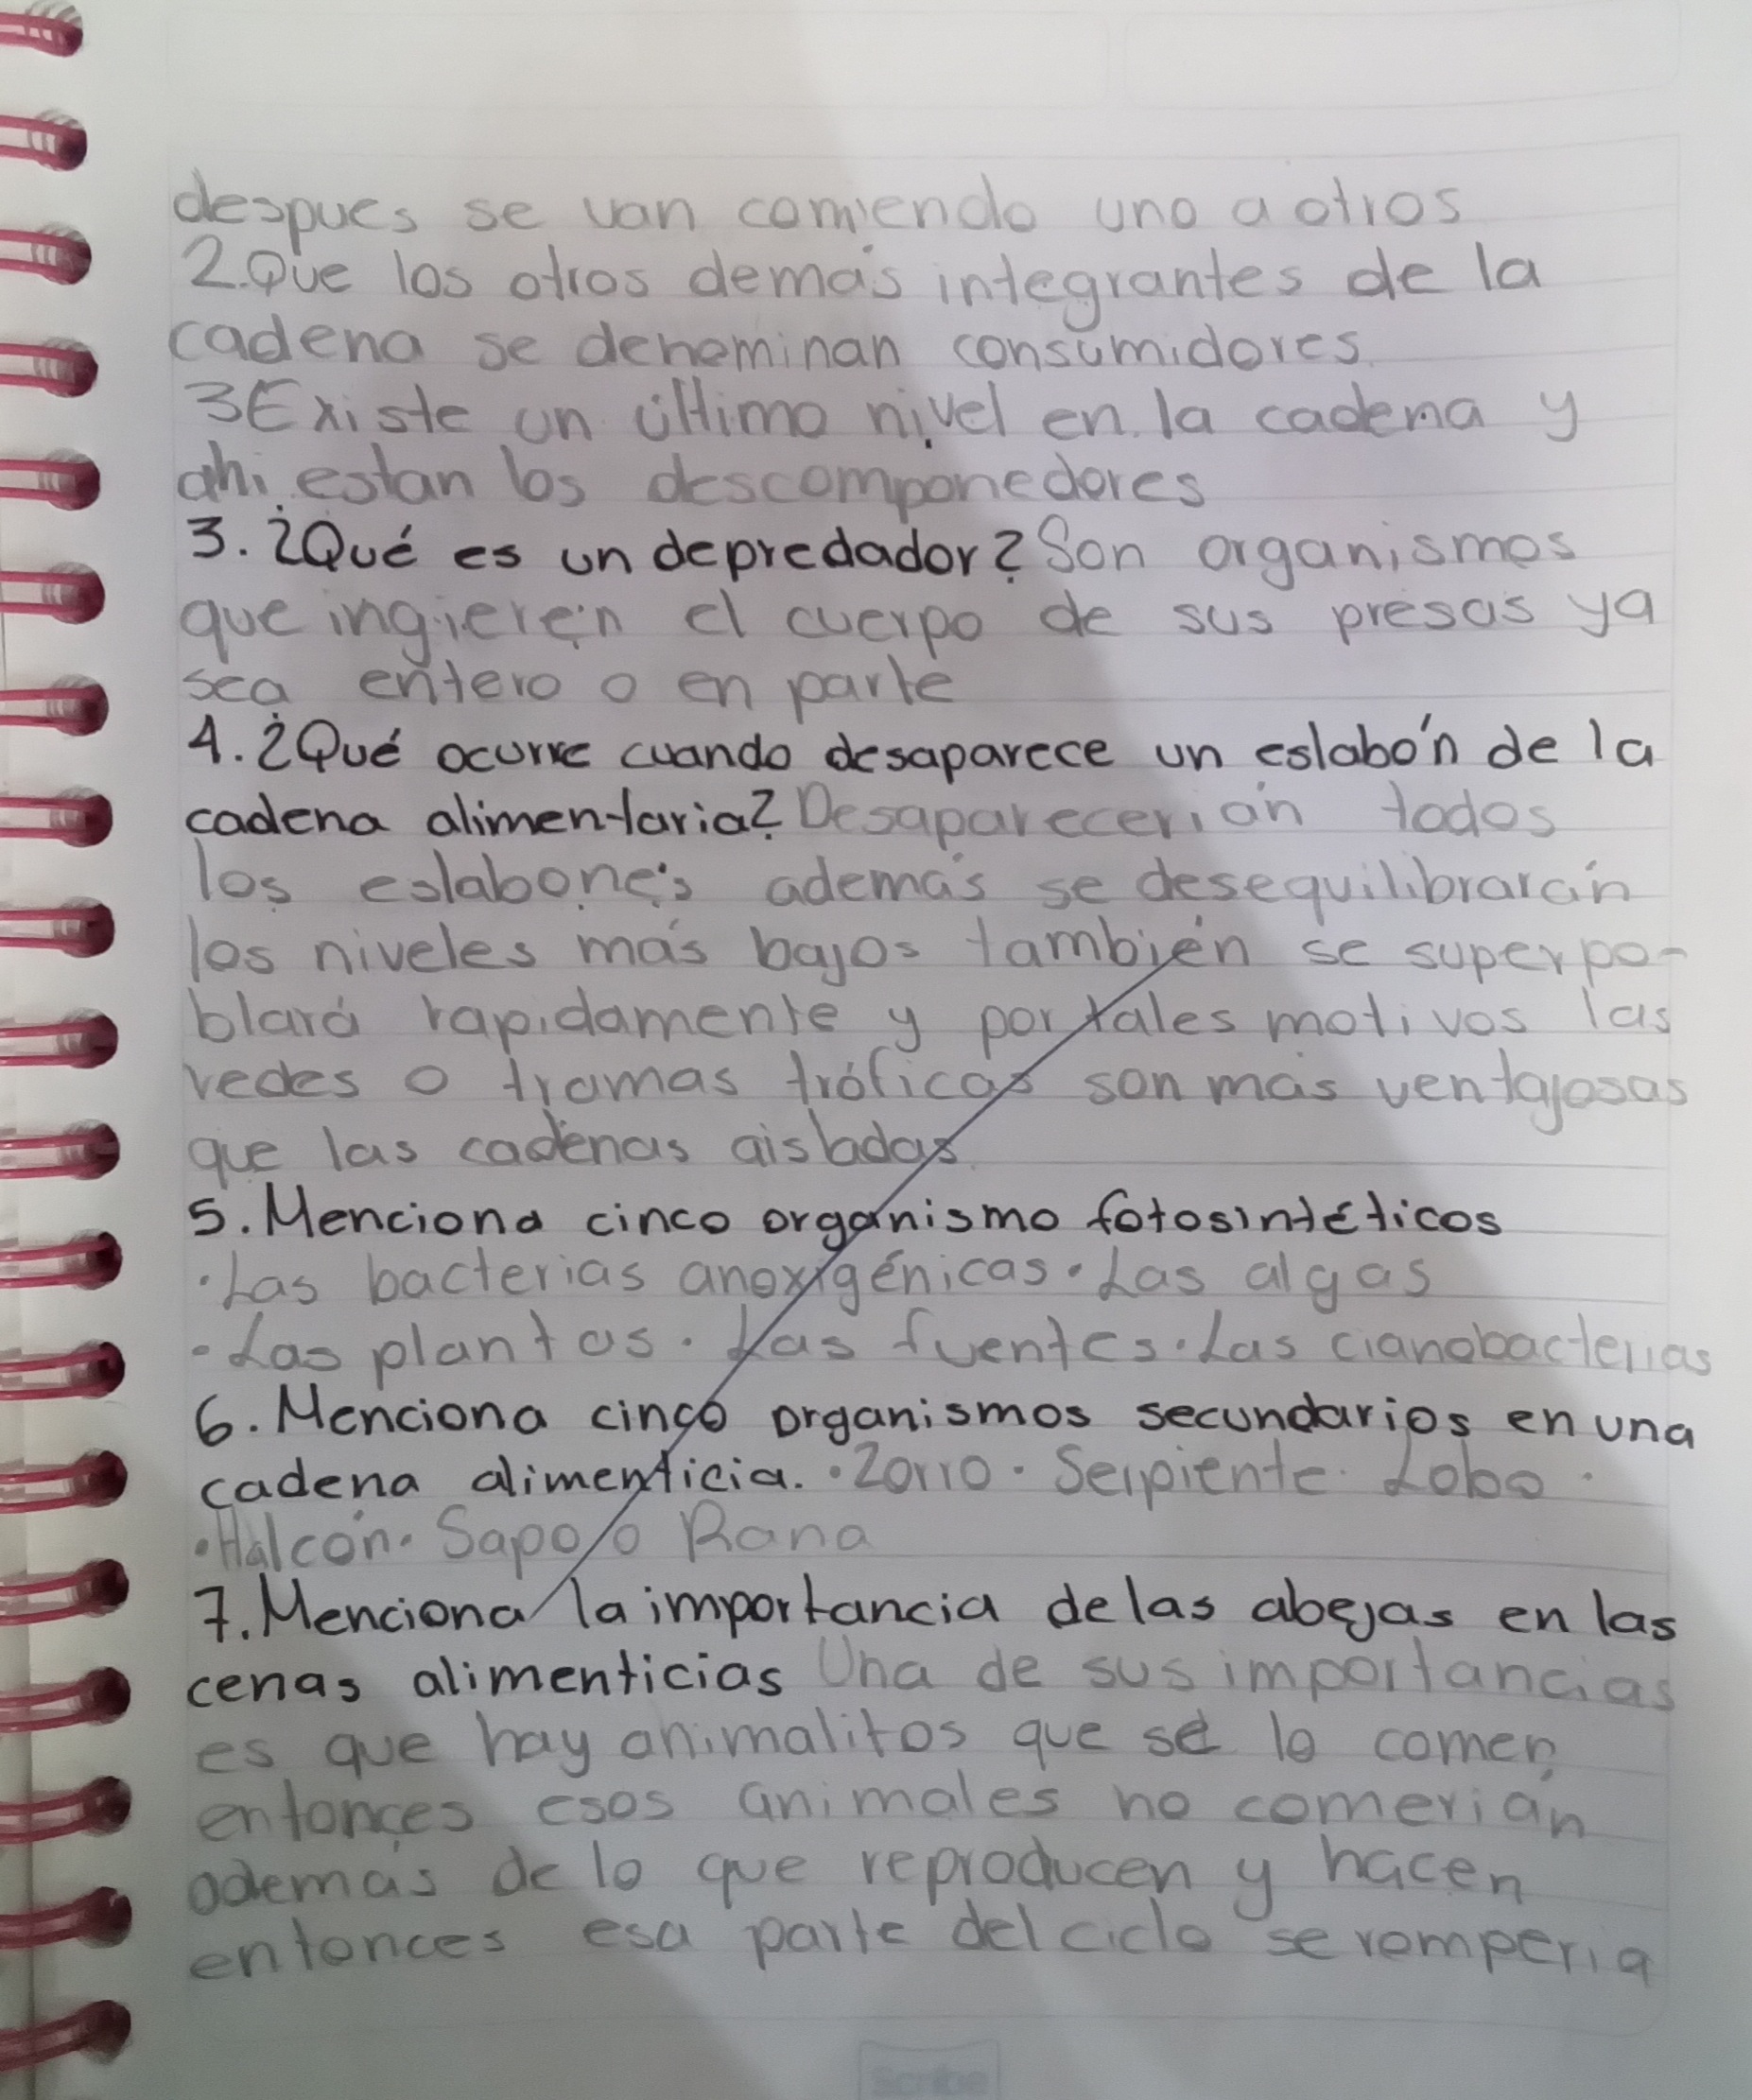 despues se van comiendo uno a otros
2.Que los otros demás integrantes de la
cadena se denominan consumidores.
3Existe un último nivel en la cadena y
ahi estan los descomponedores
3. ¿Qué es un depredador? Son organismos
que ingieren el cuerpo de sus presas ya
sea entero o en parte
4. ¿Qué ocurre cuando desaparece un eslabón de la
cadena alimentaria? Desaparecerián todos
los eslabones además se desequilibrarán
los niveles más bajos también se superpo-
blará rapidamente y por tales motivos las
redes o tramas tróficas son más ventajosas
que las cadenas aisladas.
5. Menciona cinco organismo fotosintéticos
·Las bacterias anoxigénicas·Las algas
·Las plantas·Las fuentes·Las cianobacterias
6. Menciona cinco organismos secundarios en una
cadena alimenticia. ·Zorro·Serpiente·Lobo·
·Halcón·Sapo o Rana
7. Menciona la importancia de las abejas en las
cenas alimenticias Una de sus importancias
es que hay animalitos que se lo comen
entonces esos animales no comerián
además de lo que reproducen y hacen
entonces esa parte del ciclo se romperia
Scribe